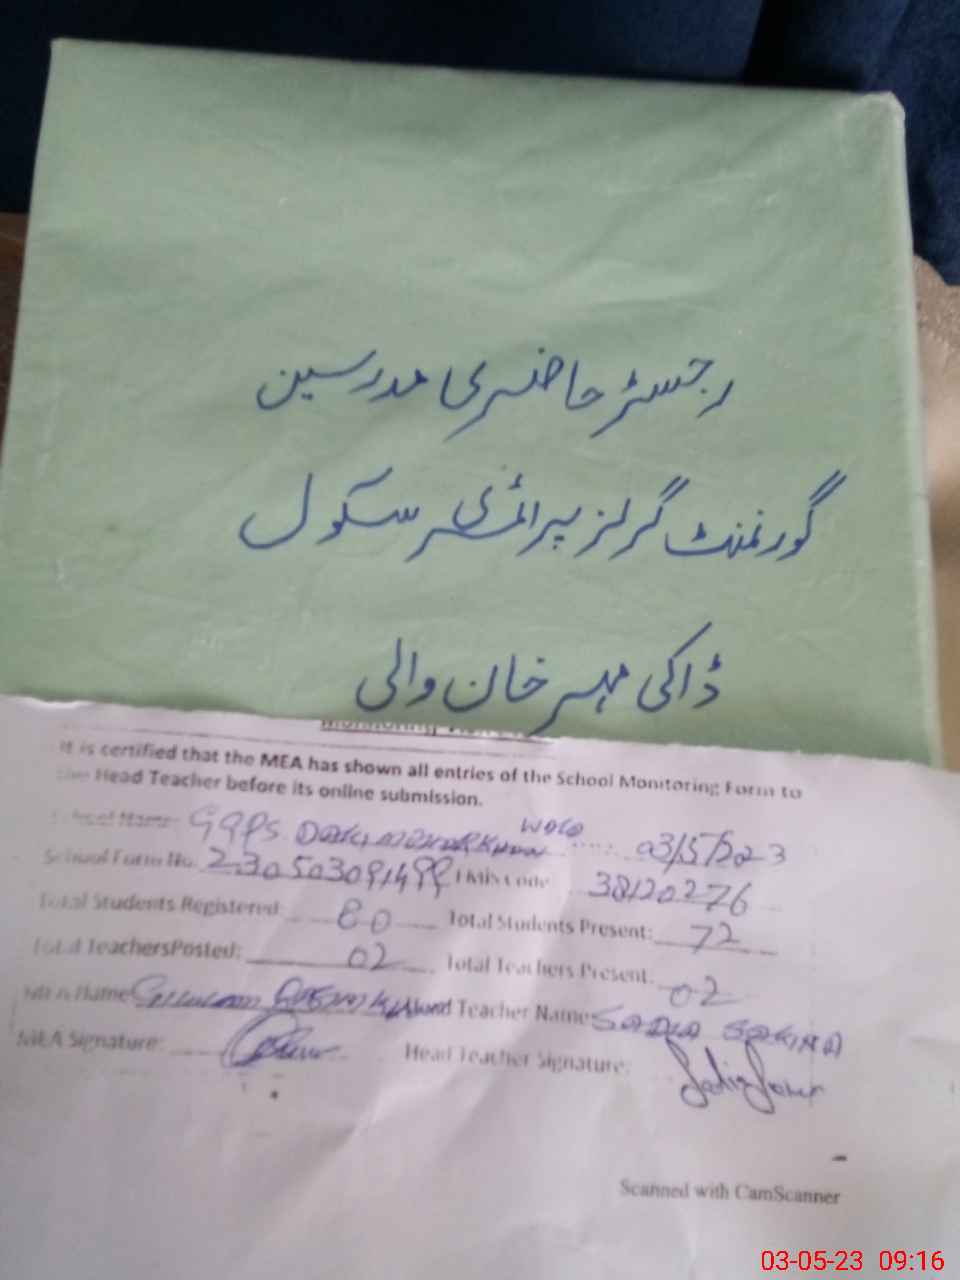 رجسٹر حاضری مدرسین
گورنمنٹ گرلز پرائمری سکول
ڈاکی مہر خان والی
It is certified that the MEA has shown all entries of the School Monitoring Form to
the Head Teacher before its online submission.
School Name: GGPS 03/5/2023
School Form No. EMIS Code: 38120276
Total Students Registered: 80 Total Students Present: 72
Total TeachersPosted: 02 Total Teachers Present: 02
MEA Name Head Teacher Name SADIA
MEA Signature: Head Teacher Signature:
Scanned with CamScanner
03-05-23 09:16